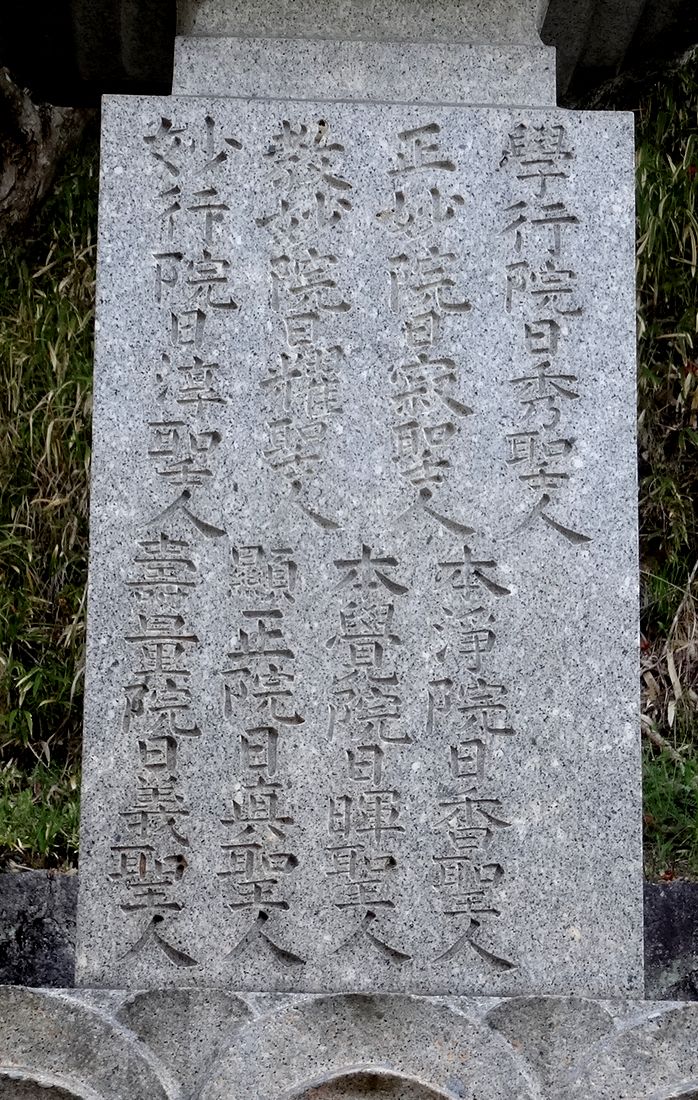 學行院日秀聖人
正妙院日寂聖人
教妙院日耀聖人
妙行院日淳聖人
本淨院日香聖人
本覺院日暉聖人
顯正院日真聖人
壽量院日義聖人